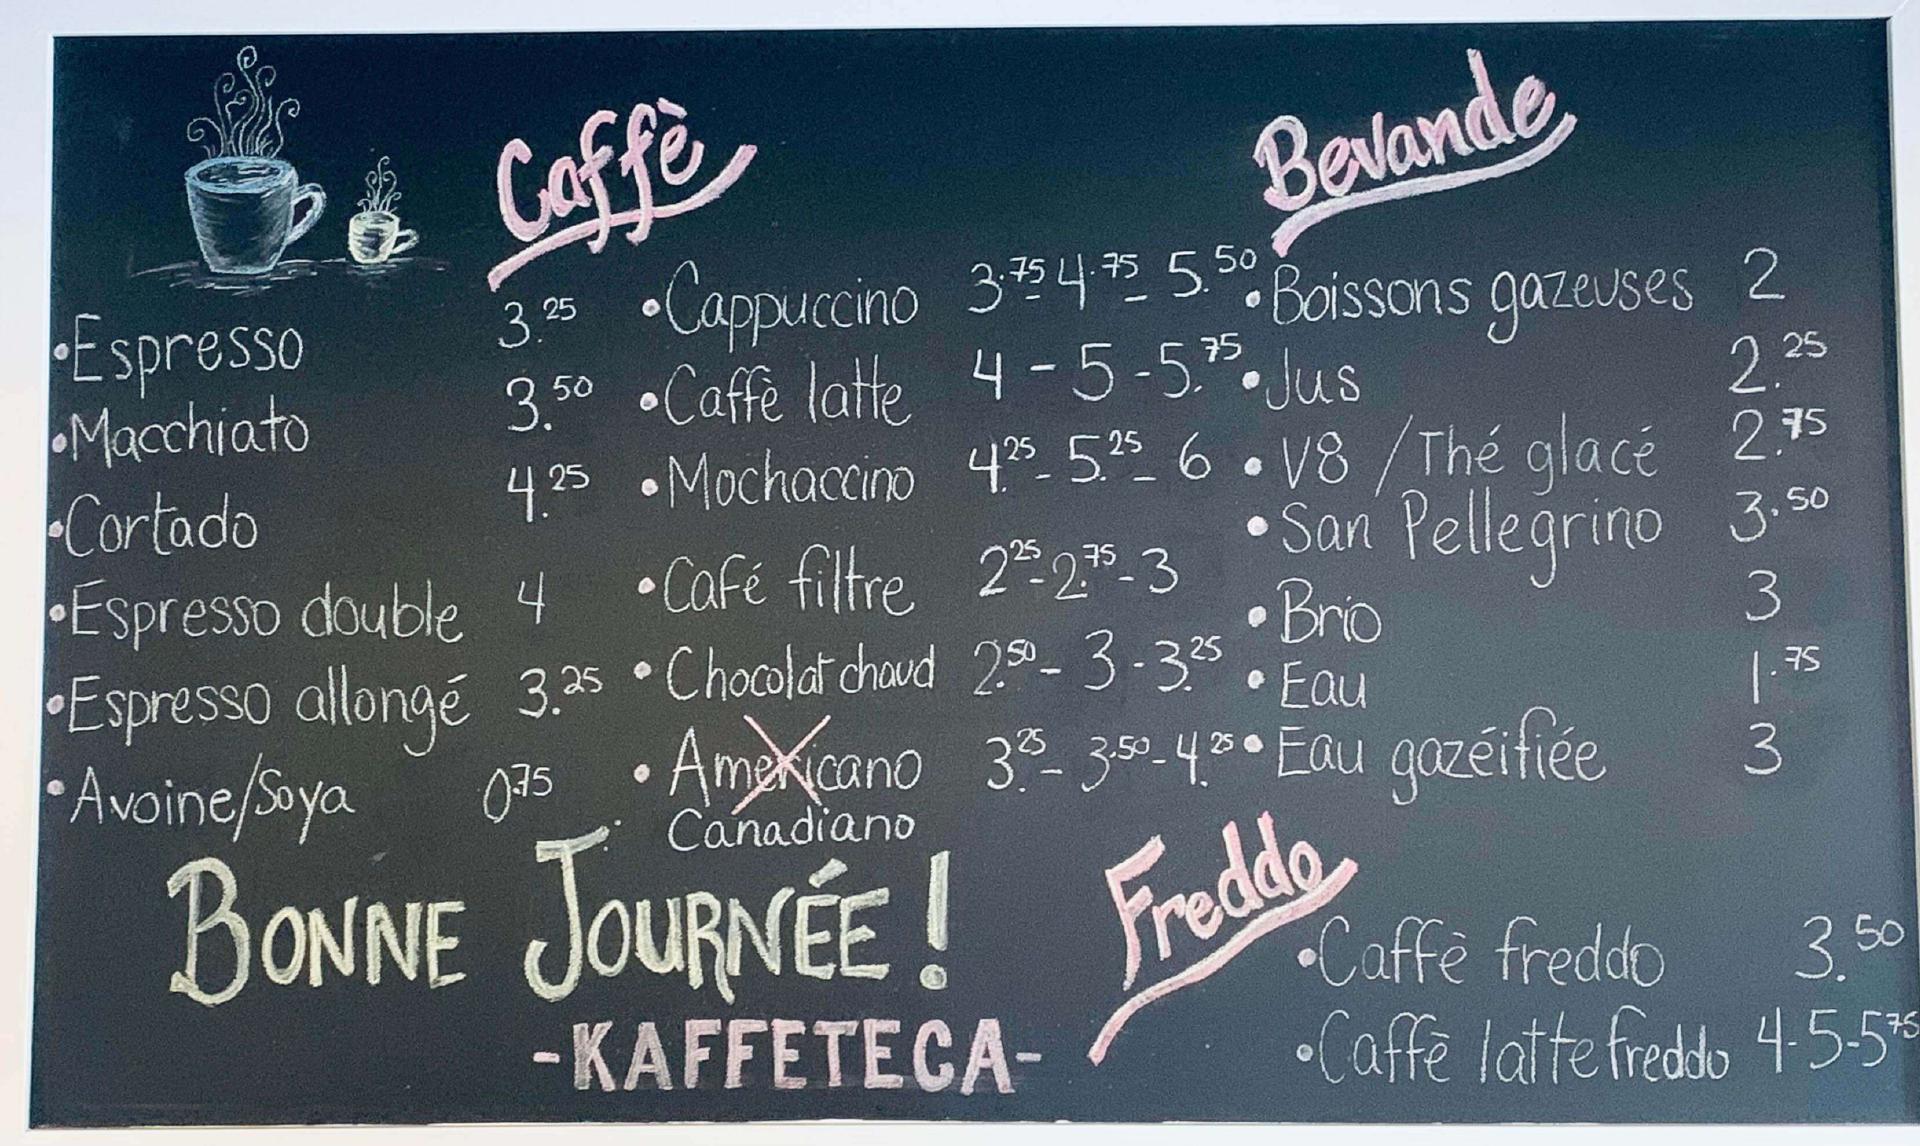 Caffè
• Espresso 3.25
• Macchiato 3.50
• Cortado 4.25
• Espresso double 4
• Espresso allongé 3.25
• Avoine/Soya 0.75
• Cappuccino 3.75 - 4.75 - 5.50
• Caffè latte 4 - 5 - 5.75
• Mochaccino 4.25 - 5.25 - 6
• Café filtre 2.25 - 2.75 - 3
• Chocolat chaud 2.50 - 3 - 3.25
• Americano 3.25 - 3.50 - 4.25
Canadiano
Bevande
• Boissons gazeuses 2
• Jus 2.25
• V8 / Thé glacé 2.75
• San Pellegrino 3.50
• Brio 3
• Eau 1.75
• Eau gazéifiée 3
Freddo
• Caffè freddo 3.50
• Caffè latte freddo 4 - 5 - 5.75
BONNE JOURNÉE !
-KAFFETECA-